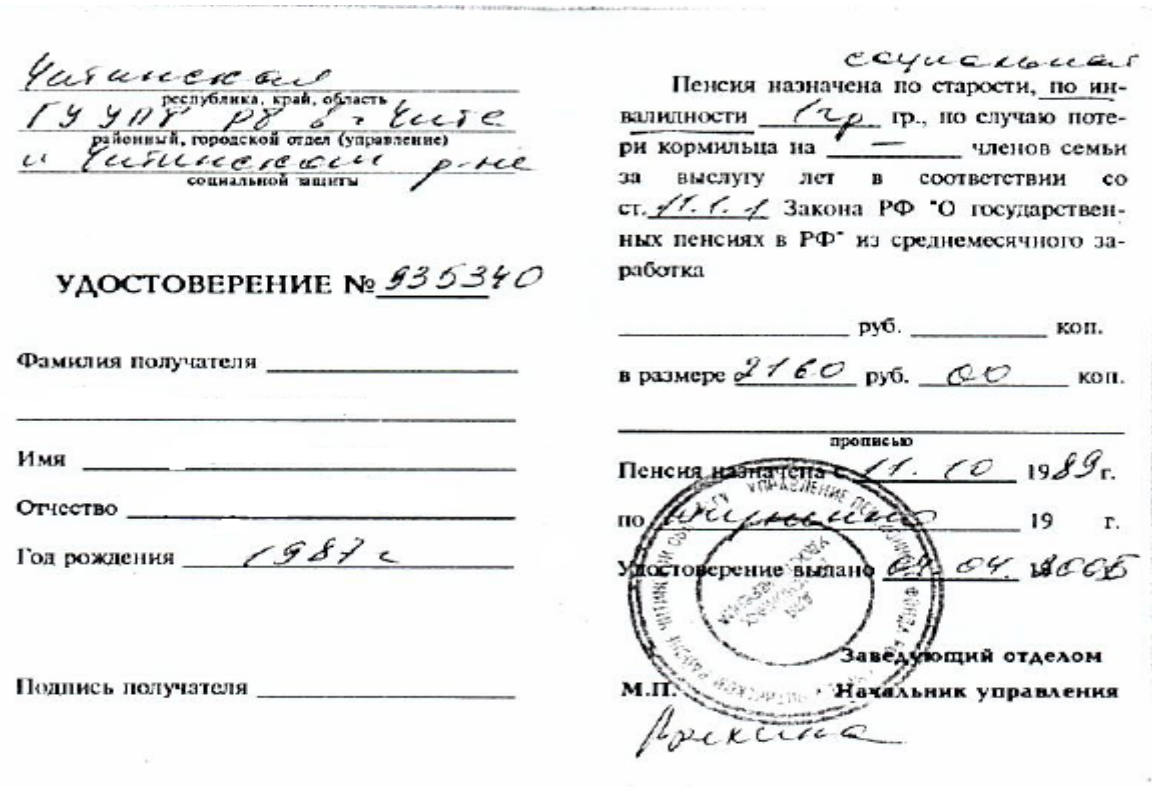 Читинская
республика, край, область
ГУ УПФ РФ в г. Чите
районный, городской отдел (управление)
и Читинском р-не
социальной защиты
УДОСТОВЕРЕНИЕ № 935340
Фамилия получателя
Имя
Отчество
Год рождения 1987 г
Подпись получателя
социальная
Пенсия назначена по старости, по ин-
валидности 1 гр гр., по случаю поте-
ри кормильца на — членов семьи
за выслугу лет в соответствии со
ст. Закона РФ "О государствен-
ных пенсиях в РФ" из среднемесячного за-
работка
руб. коп.
в размере 2160 руб. 00 коп.
прописью
Пенсия назначена с 11. 10 1989 г.
по 19 г.
Удостоверение выдано 04. 2005
Заведующий отделом
М.П. Начальник управления